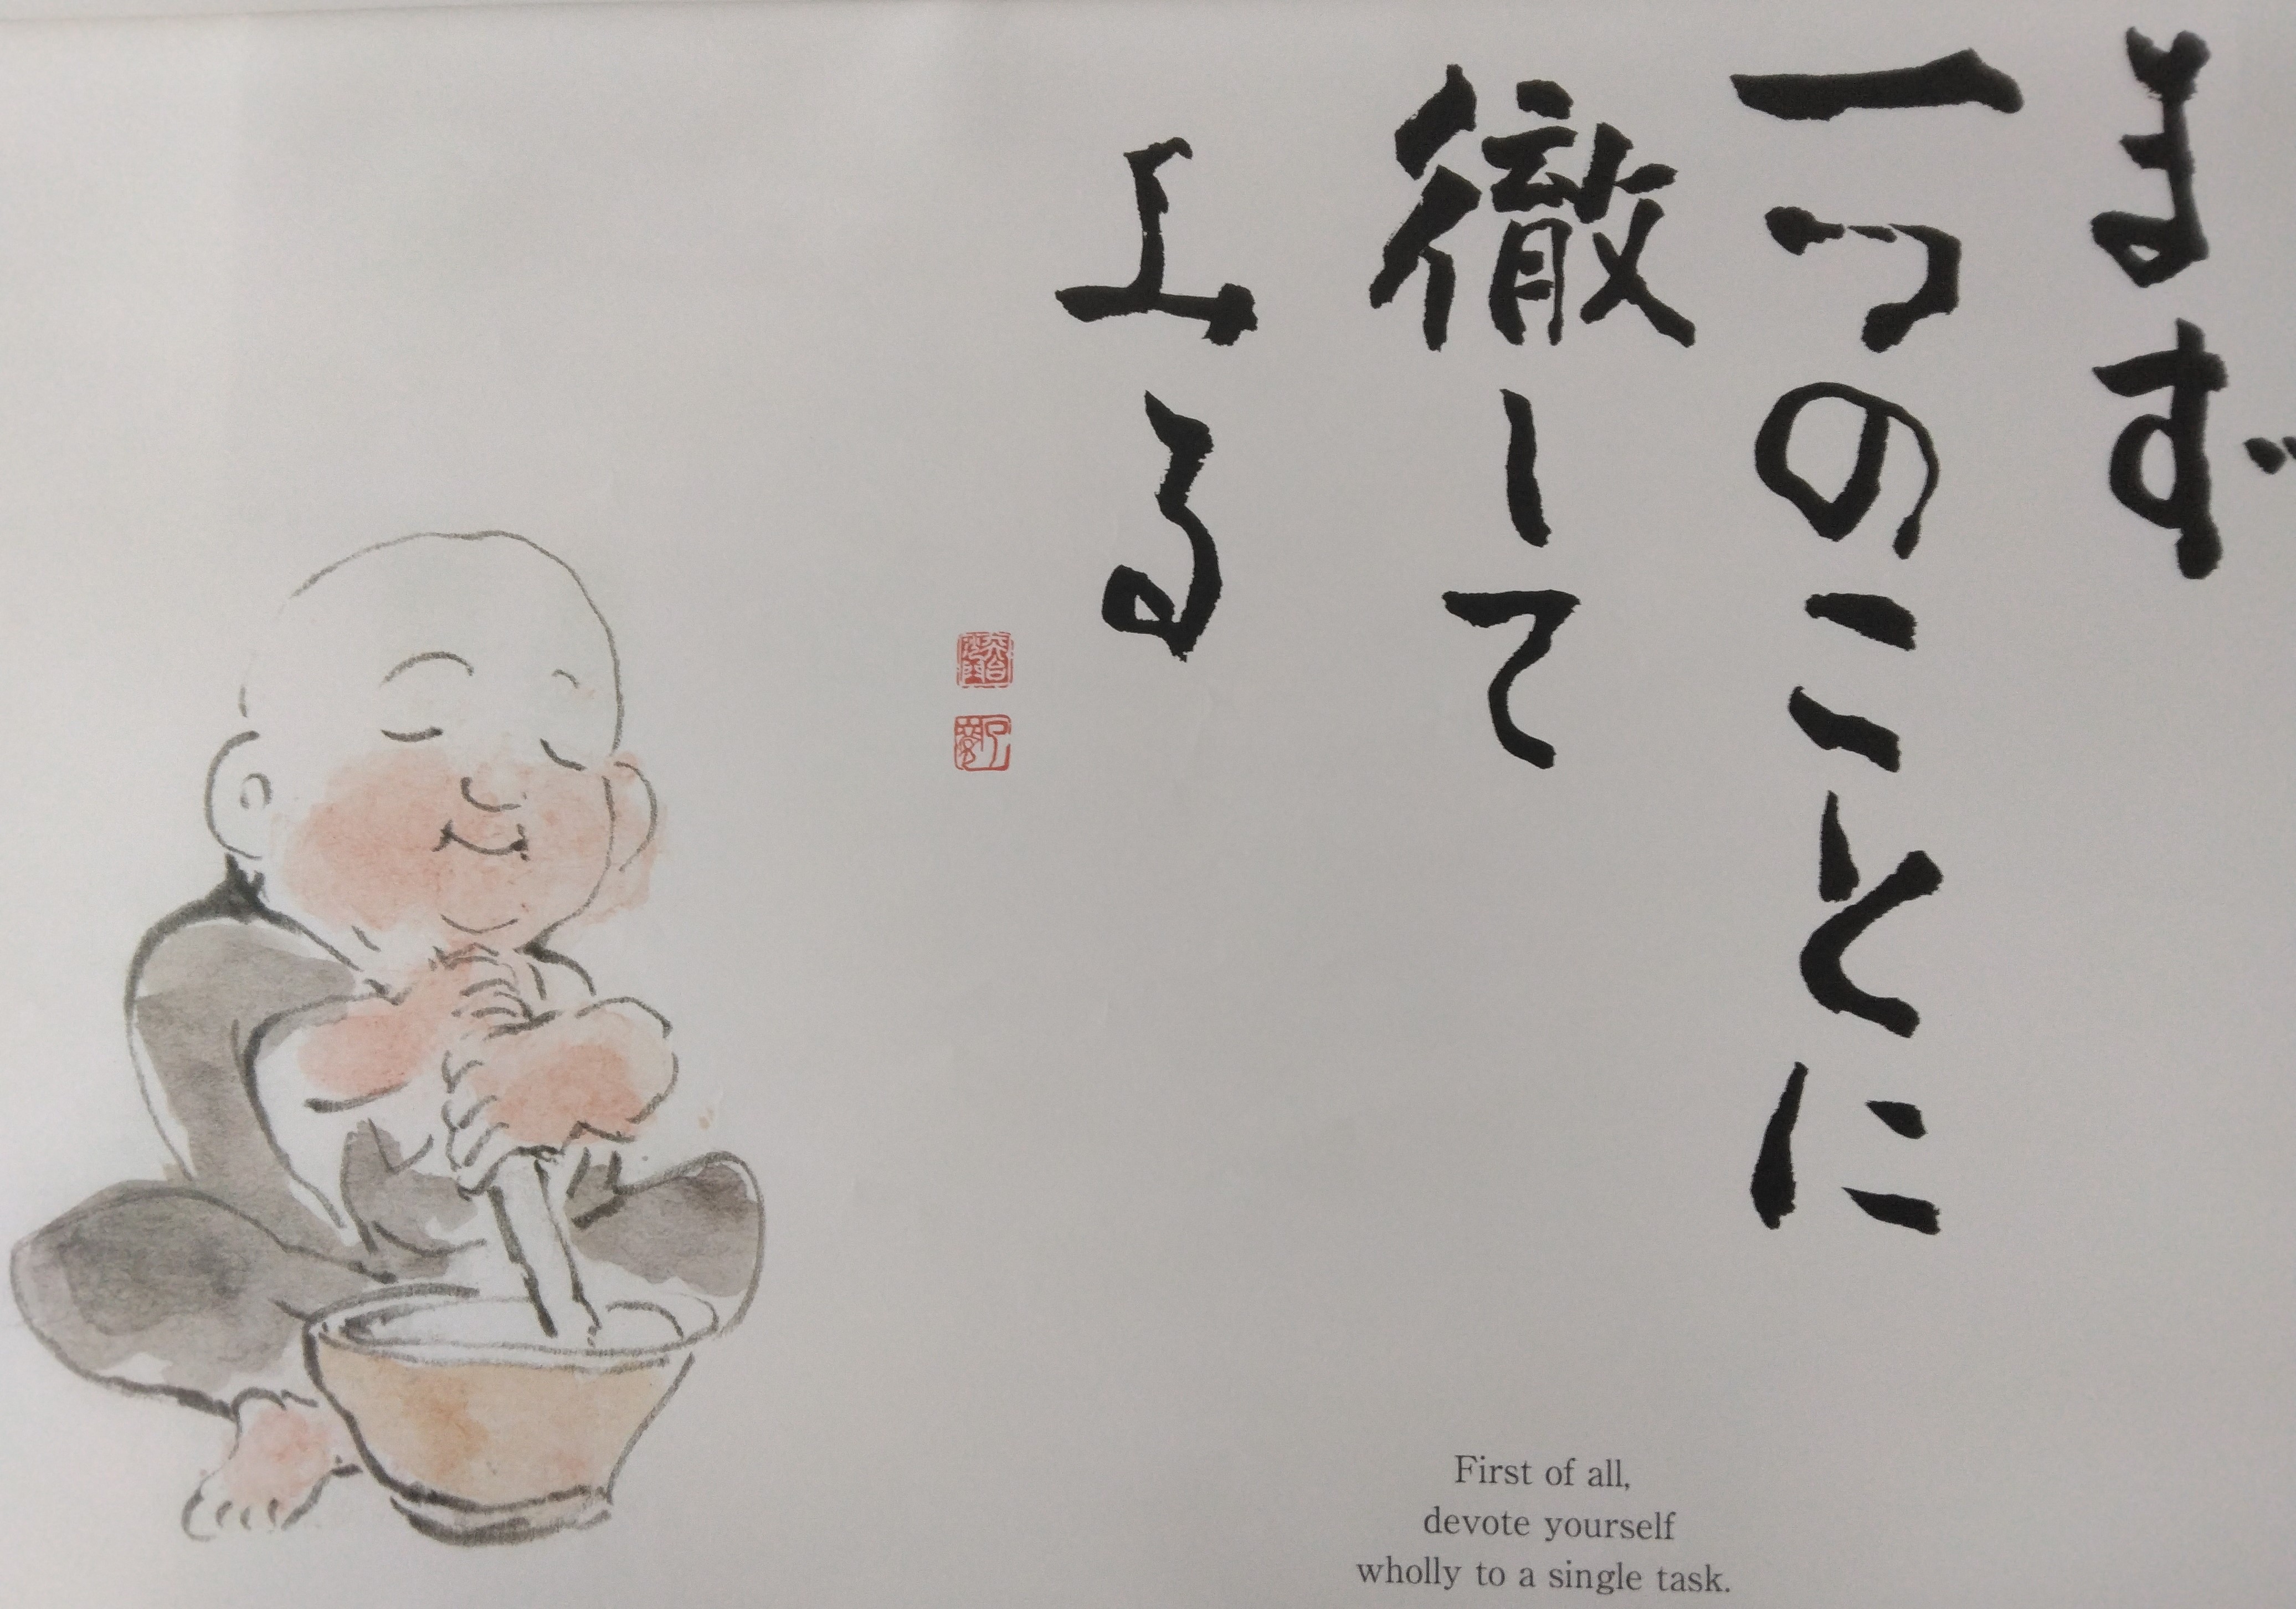 まず
一つのことに
徹して
みる
First of all,
devote yourself
wholly to a single task.